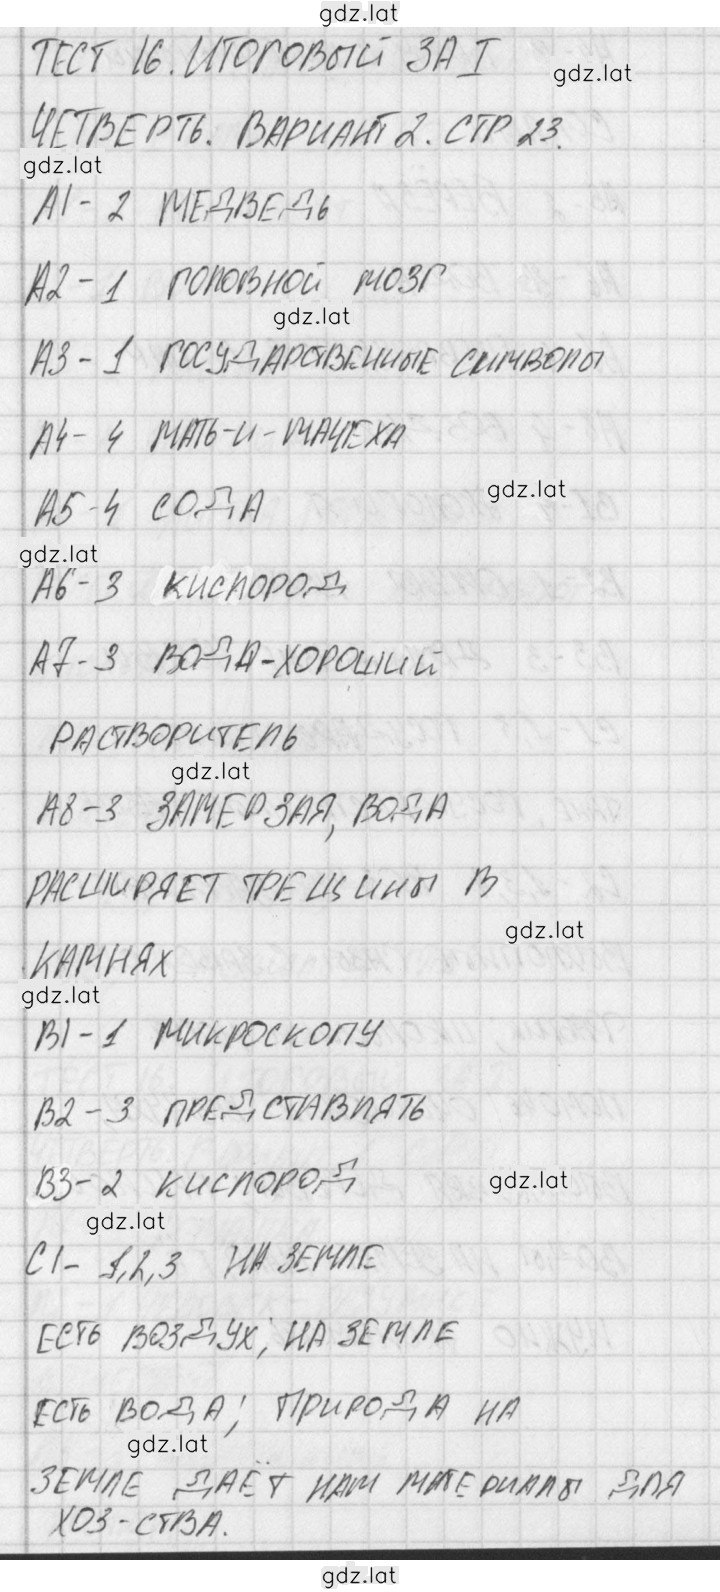 gdz.lat
ТЕСТ 16. ИТОГОВЫЙ ЗА I
gdz.lat
ЧЕТВЕРТЬ. ВАРИАНТ 2. СТР 23.
gdz.lat
А1 - 2 МЕДВЕДЬ
А2 - 1 ГОЛОВНОЙ МОЗГ
gdz.lat
А3 - 1 ГОСУДАРСТВЕННЫЕ СИМВОЛЫ
А4 - 4 МАТЬ-И-МАЧЕХА
gdz.lat
А5 - 4 СОДА
gdz.lat
А6 - 3 КИСЛОРОД
А7 - 3 ВОДА - ХОРОШИЙ
РАСТВОРИТЕЛЬ
gdz.lat
А8 - 3 ЗАМЕРЗАЯ, ВОДА
РАСШИРЯЕТ ТРЕЩИНЫ В
gdz.lat
КАМНЯХ
gdz.lat
В1 - 1 МИКРОСКОПУ
В2 - 3 ПРЕДСТАВЛЯТЬ
В3 - 2 КИСЛОРОД
gdz.lat
gdz.lat
С1 - 1,2,3 НА ЗЕМЛЕ
ЕСТЬ ВОЗДУХ; НА ЗЕМЛЕ
ЕСТЬ ВОДА; ПРИРОДА НА
gdz.lat
ЗЕМЛЕ ДАЁТ НАМ МАТЕРИАЛЫ ДЛЯ
ХОЗ-СТВА.
gdz.lat